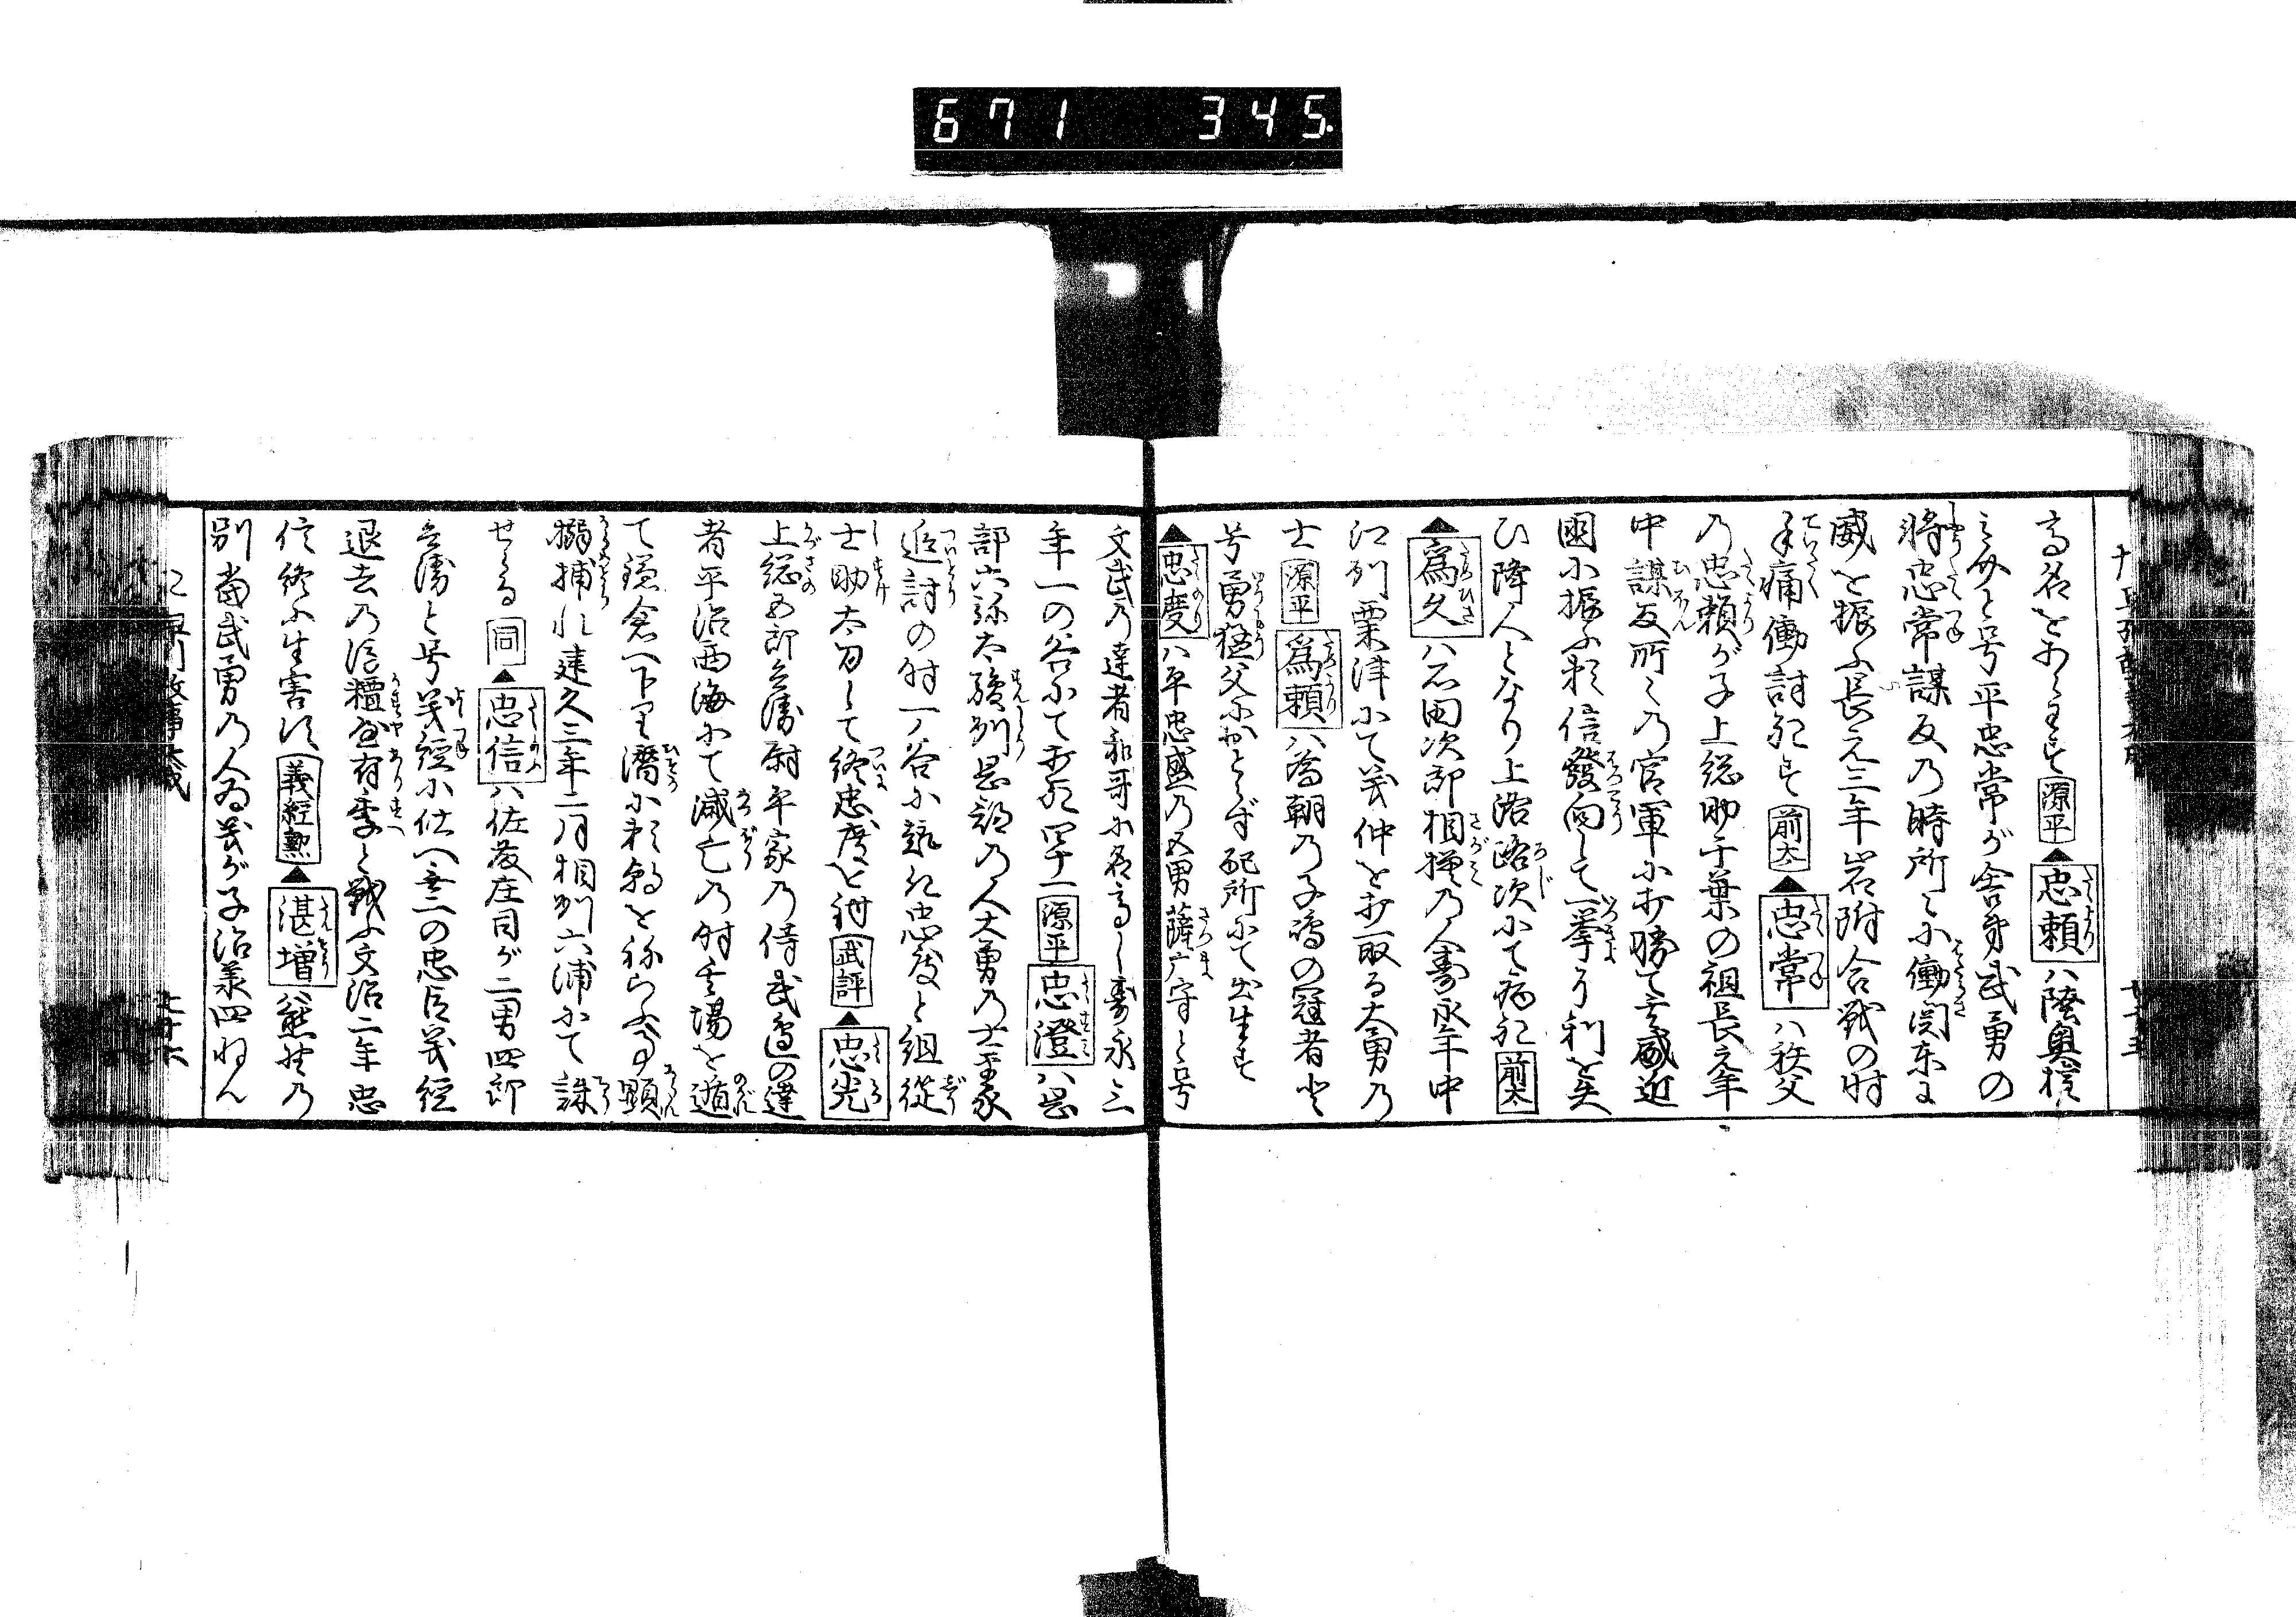 671 345.
高名をあらはす 源平 ▲忠頼ハ陸奥
と号平忠常が舎弟武勇の
将忠常謀反の時所々に働関東に
威を振ふ長元三年岩附合戦の時
痛働討死す 前太 ▲忠常ハ秩父
の忠頼が子上総助千葉の祖長元年
中謀反所々の官軍に打勝て威近
国に振ふ頼信發向して一挙に利を失
ひ降人となり上洛路次にて病死 前太
▲爲久ハ石田次郎相摸の人寿永年中
江州粟津にて義仲を打取る大勇の
士 源平 爲頼ハ為朝の子嶋の冠者と
号勇猛父におとらず配所にて出生す
▲忠度ハ平忠盛の五男薩广守と号
文武の達者和哥に名高し寿永三
年一の谷にて打死四十一 源平 忠澄ハ岡
部六弥太武州岡部の人大勇の士平家
追討の時一ノ谷に於て忠度と組従
士助太刀して終忠度を討 武評 ▲忠光
上総五郎兵衛尉平家の侍武道の達
者平治西海にて滅亡の時戦場を遁
て鎌倉へ下り潜に頼朝をねらふ事顕
搦捕れ建久三年二月相州六浦にて誅
せらる 同 ▲忠信ハ佐藤庄司が二男四郎
兵衛と号義経に仕へ無二の忠臣義経
退去の後糟屋有季と戦ふ文治二年忠
信終に生害す 義經勲 ▲湛増ハ熊野の
別當武勇の人為義が子治承四ねん